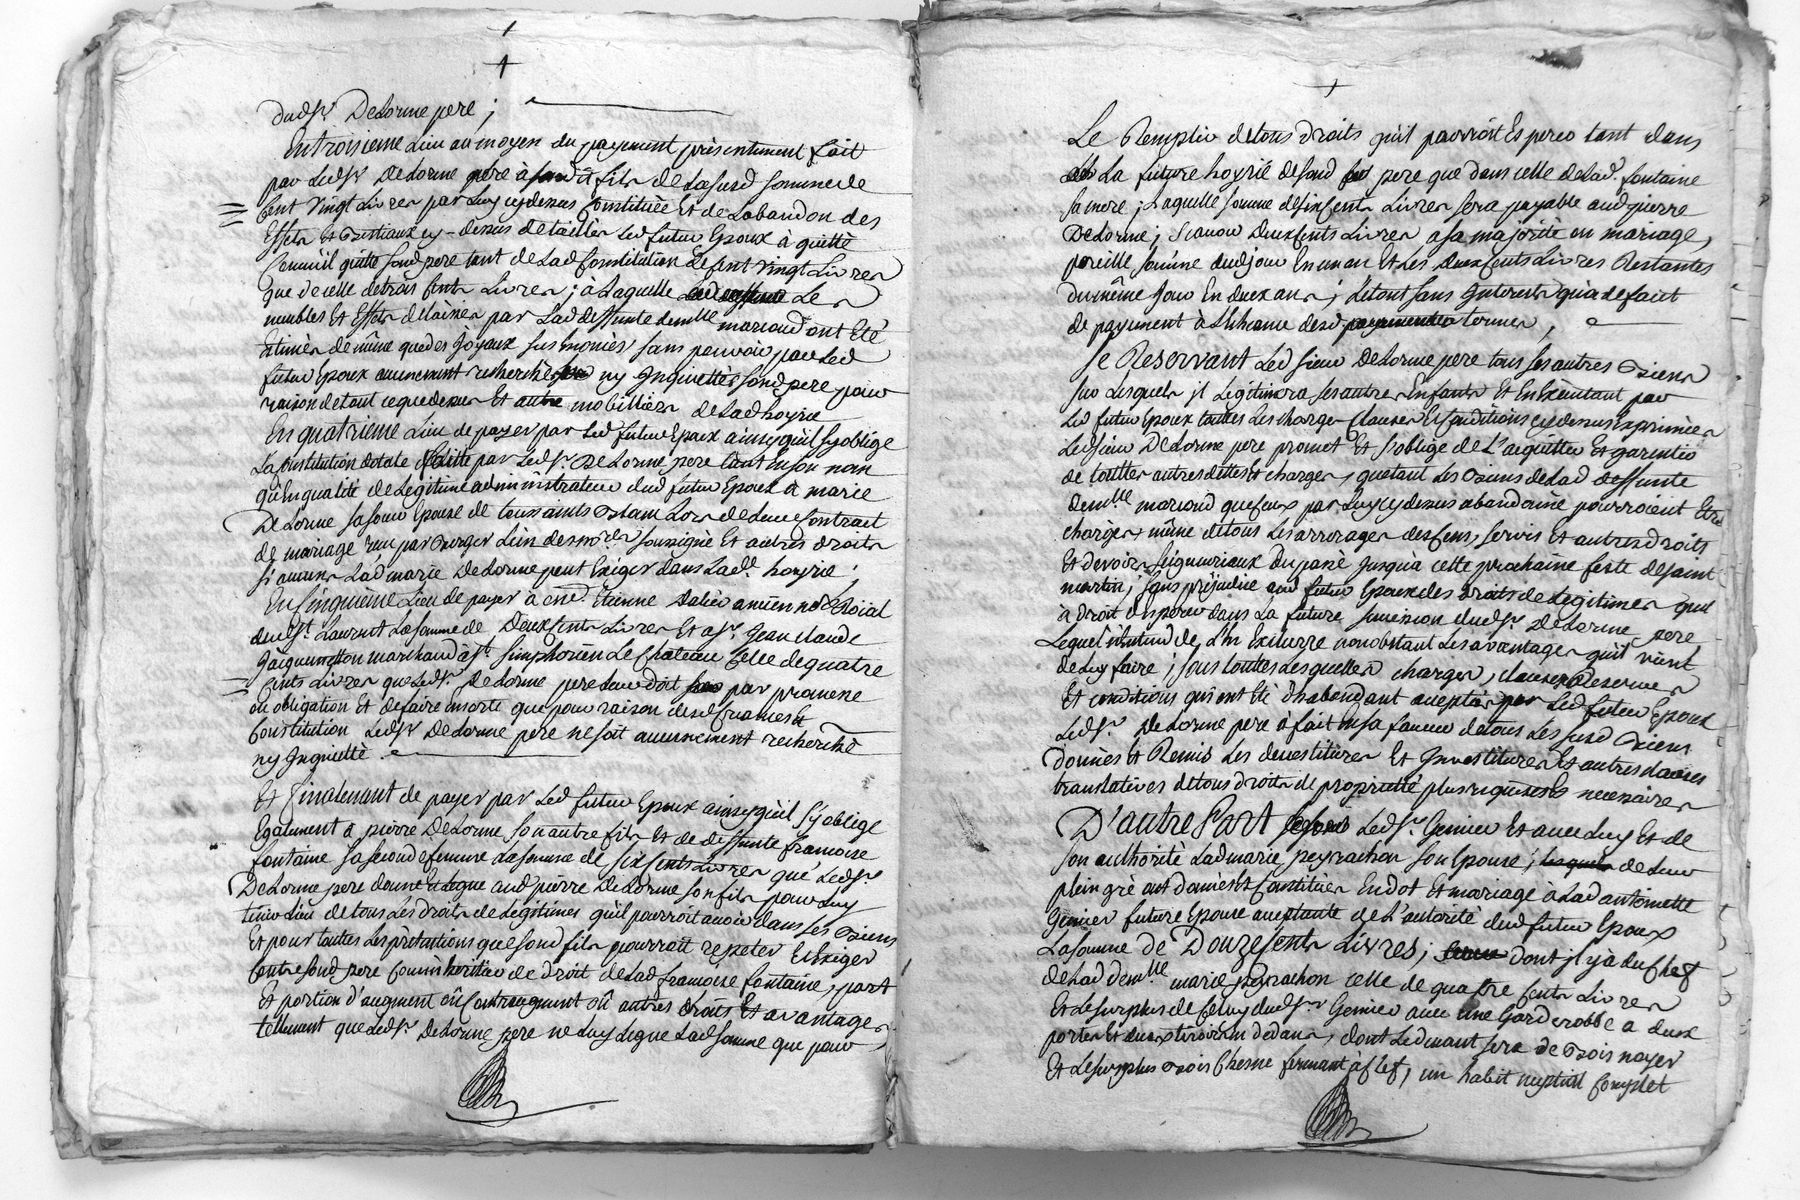 dudsr. DeLorme pere ;
En troisieme Lieu au moyen du payement presentement fait
par Ledsr DeLorme pere à sond fils de Lasusd somme de
Cent vingt Livres par Luy cydessus Constituée Et de Labandon des
Effets et Bestiaux cy-dessus detaillés Led futur Epoux à quitté
Comme il quitte sond pere tant de Lad Constitution de Cent vingt Livres
que de celle de trois Cents Livres ; à Laquelle Les
meubles Et Effets delaissés par Lad deffunte demlle mariond ont Eté
Estimés de même que des joyaux sans pouvoir par Led
futur Epoux aucunement rechercher ny Inquietter sond pere pour
raison de tout ce que dessus Et autre mobilliers de Lad hoyrie
En quatrieme Lieu de payer par Led futur Epoux ainsy qu'il s'y oblige
La Constitution dotale faitte par Ledsr. DeLorme pere tant En son nom
qu'En qualité de Legitime administrateur dud futur Epoux à marie
DeLorme sa soeur Epouse de toussaints Lors de Leur Contrat
de mariage reçu par Berger L'un des nores soussigné Et autres droits
si aucuns Lad marie DeLorme peut Exiger dans Lade. hoyrie ;
En Cinquieme Lieu de payer à me. Etienne ancien nore Roial
dudst. Laurent La somme de Deux Cents Livres Et à sr. Jean claude
Jacquemetton marchand à st. Simphorien Le Chateau Celle de quatre
Cents Livres que Ledsr. DeLorme pere Leur doit par promesse
ou obligation Et de faire En sorte que pour raison desd sommes Et
Constitution Ledsr DeLorme pere ne soit aucunement recherché
ny Inquietté .
Et Finalement de payer par Led futur Epoux ainsy qu'il s'y oblige
Egalement à pierre DeLorme son autre fils Et de deffunte francoise
fontaine sa seconde femme La somme de six Cents Livres que Ledsr.
DeLorme pere donne Et Legue aud pierre DeLorme son fils pour Luy
tenir Lieu de tous Les droits de Legitimes qu'il pourroit avoir dans Ses Biens
Et pour toutes Les pretentions que sond fils pourroit repeter Et Exiger
Contre sond pere Comme heritier de droit de Lad francoise fontaine, part
Et portion d'augment où Contreaugment où autres droits Et avantages
tellement que Ledsr. DeLorme pere ne Luy Legue Lad somme que pour
Le Remplir de tous droits qu'il pourroit Esperer tant dans
La future hoyrie de sond pere que dans celle de Lad. fontaine
sa mere ; Laquelle somme de six Cents Livres sera payable aud pierre
DeLorme ; Scavoir Deux Cents Livres à sa majorité ou mariage,
pareille somme dudjour En un an Et Les Deux Cents Livres Restantes
du même Jour En deux ans ; Le tout sans Interets qu'à defaut
de payement à L'Echeance desd termes ,
Se Reservant Led sieur DeLorme pere tous ses autres Biens
sur Lesquels il Legitimera ses autres Enfants Et En Executant par
Led futur Epoux toutes Les charges Clauses Et Conditions cydessus Exprimées
Led sieur DeLorme pere promet Et s'oblige de L'aquitter Et garentir
de touttes autres dettes Et charges, que tant Les Biens de Lad deffunte
demlle. mariond que Ceux par Luy cydessus abandonné pourroient Etre
chargés même de tous Les arrerages des Cens, servis Et autres droits
Et devoirs seigneuriaux Du passé Jusqu'à cette prochaine feste de saint
martin ; sans prejudice aud futur Epoux des droits de Legitimes qu'il
à droit d'Esperer dans La future succession dudsr DeLorme pere
Lequel n'Entend de L'en Exclurre nonobstant Les avantages qu'il vient
de Luy faire ; sous touttes Lesquelles charges, clauses Reserves
Et conditions qui ont Eté d'habondant acceptés par Led futur Epoux
Ledsr. DeLorme pere à fait En sa faveur de tous Les susd Biens
donnés Et Remis Les devestitures Et Investitures Et autres clauses
translatives de tous droits de proprietté plus requises Et necessaires
D'autre Part Ledsr. Genier Et avec Luy Et de
son authorité Lad marie peyrachon son Epouse ; de Leur
plein gré ont donnés Et Constitués En dot Et mariage à Lad antoinette
Genier future Epouse acceptante de L'autorité dud futur Epoux
La somme de Douze Cents Livres ; dont il y a du Chef
de Lad demlle. marie peyrachon celle de quattre Cents Livres
Et Le surplus de Celuy dudsr. Genier avec une Garderobbe a deux
portes Et deux tiroirs En dedans, dont Le devant sera de Bois noyer
Et Le surplus Bois Chesne fermant à Clef, un habit nuptial Complet